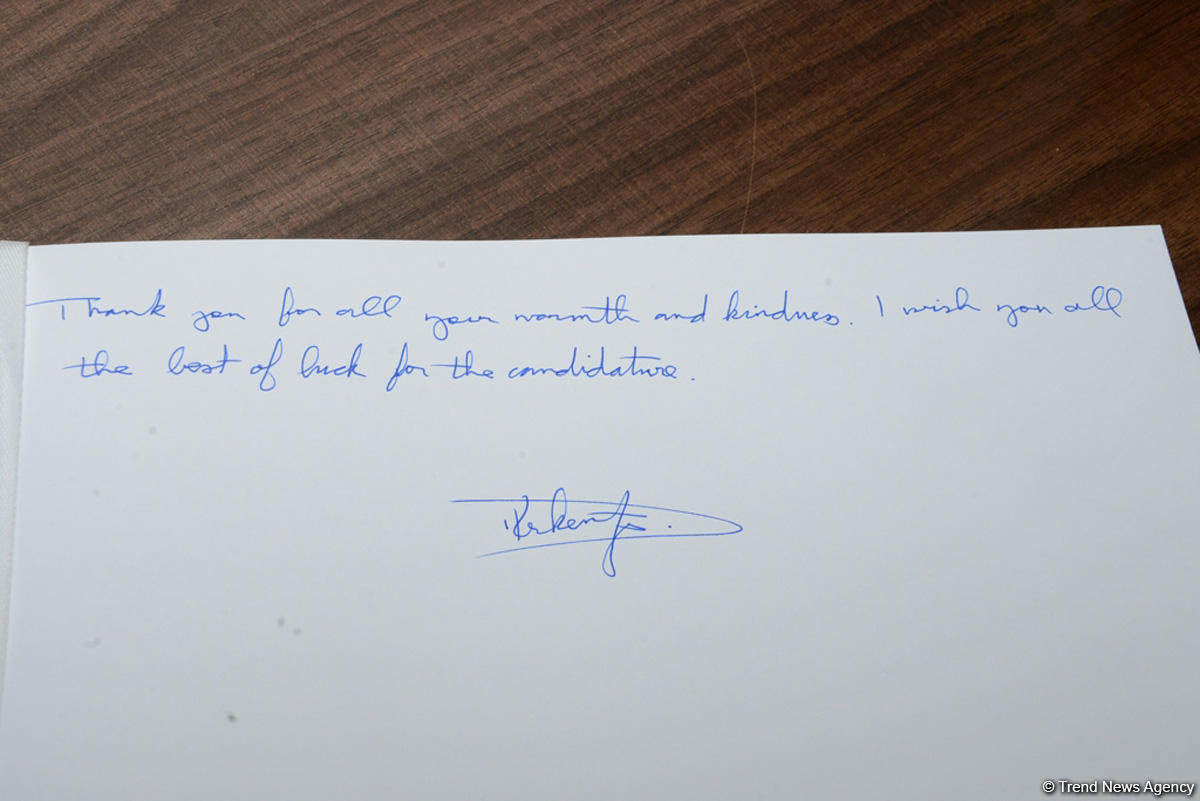 Thank you for all your warmth and kindness. I wish you all
the best of luck for the candidature.
© Trend News Agency